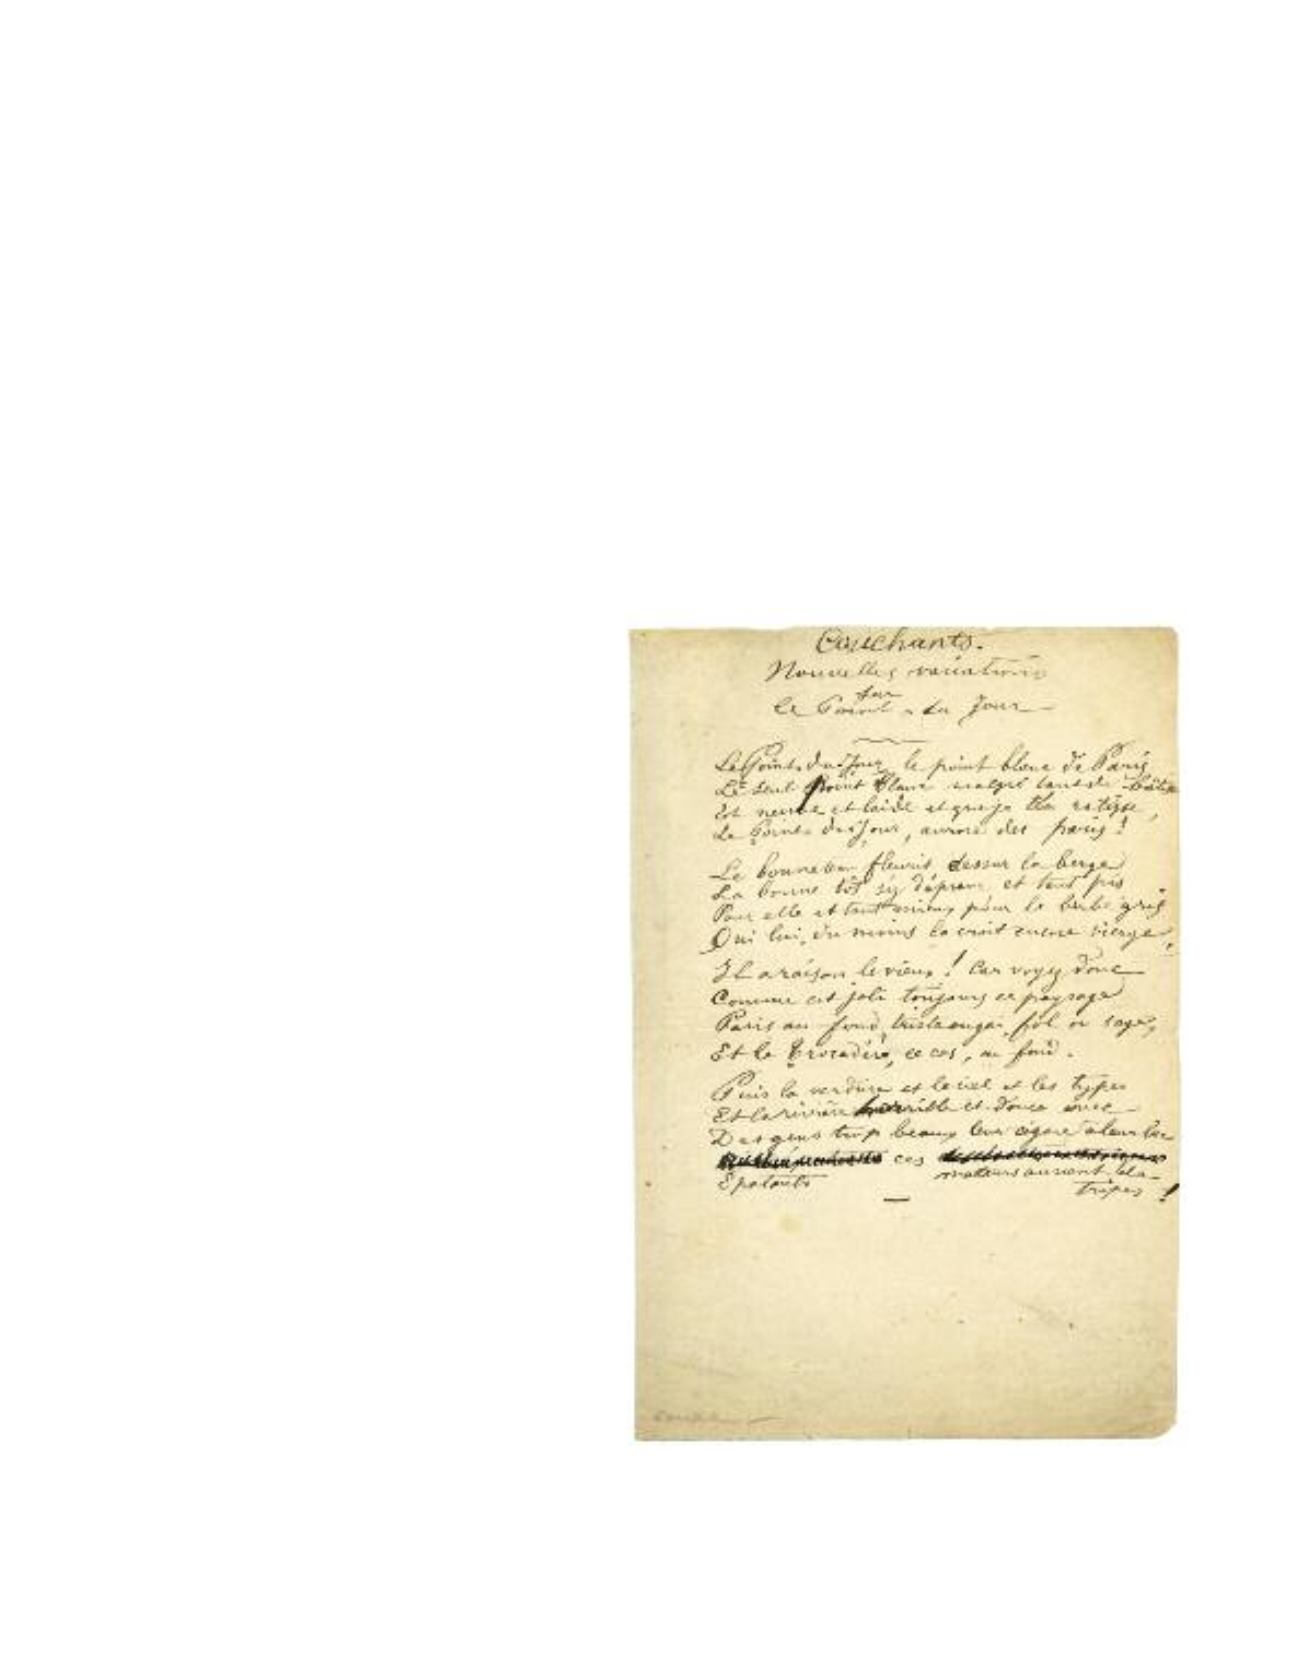 Couchants.
Nouvelles variations
sur
le Point-du Jour
Le Point-du-Jour, le point blanc de Paris,
Le seul point blanc malgré tant de bâtisse
Et neuve et laide et que je t'en ratisse,
Le Point-du-Jour, aurore des paris !
Le bonneteau fleurit dessur la berge
La bonne tôt s'y déprave, et tant pis
Pour elle et tant mieux pour le birbe gris
Qui lui, du moins la croit encore vierge.
Il a raison, le vieux ! Car voyez donc
Comme est joli toujours ce paysage
Paris au fond, triste et gai, fol et sage,
Et le Trocadéro, ce cas, au fond.
Puis la verdure et le ciel et les types
Et la rivière et douce avec
Des gens trop beaux, leur cigare à leur bec
ces
Epatants
metteurs au vent de
tripes !